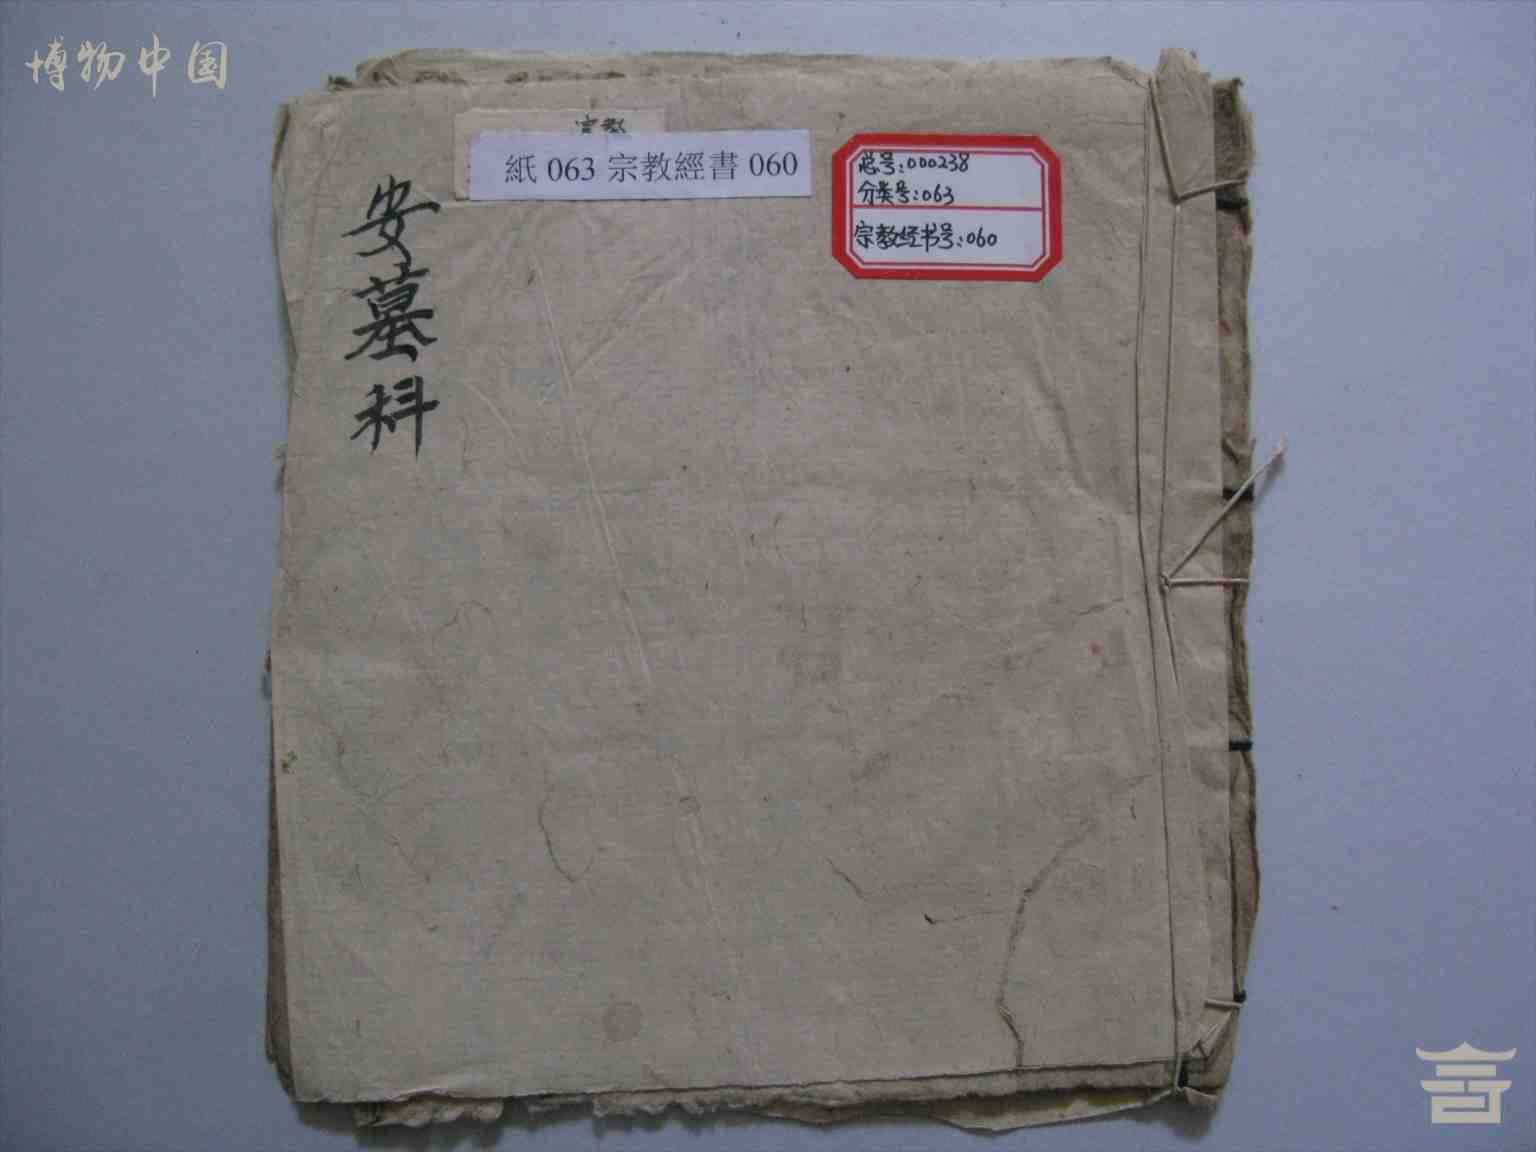 博物中国
宗教
紙 063 宗教經書 060
总号:000238
分类号:063
宗教经书号:060
安墓科